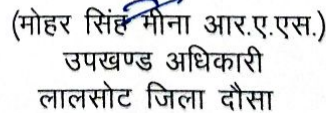 (मोहर सिंह मीना आर.ए.एस.)
उपखण्ड अधिकारी
लालसोट जिला दौसा